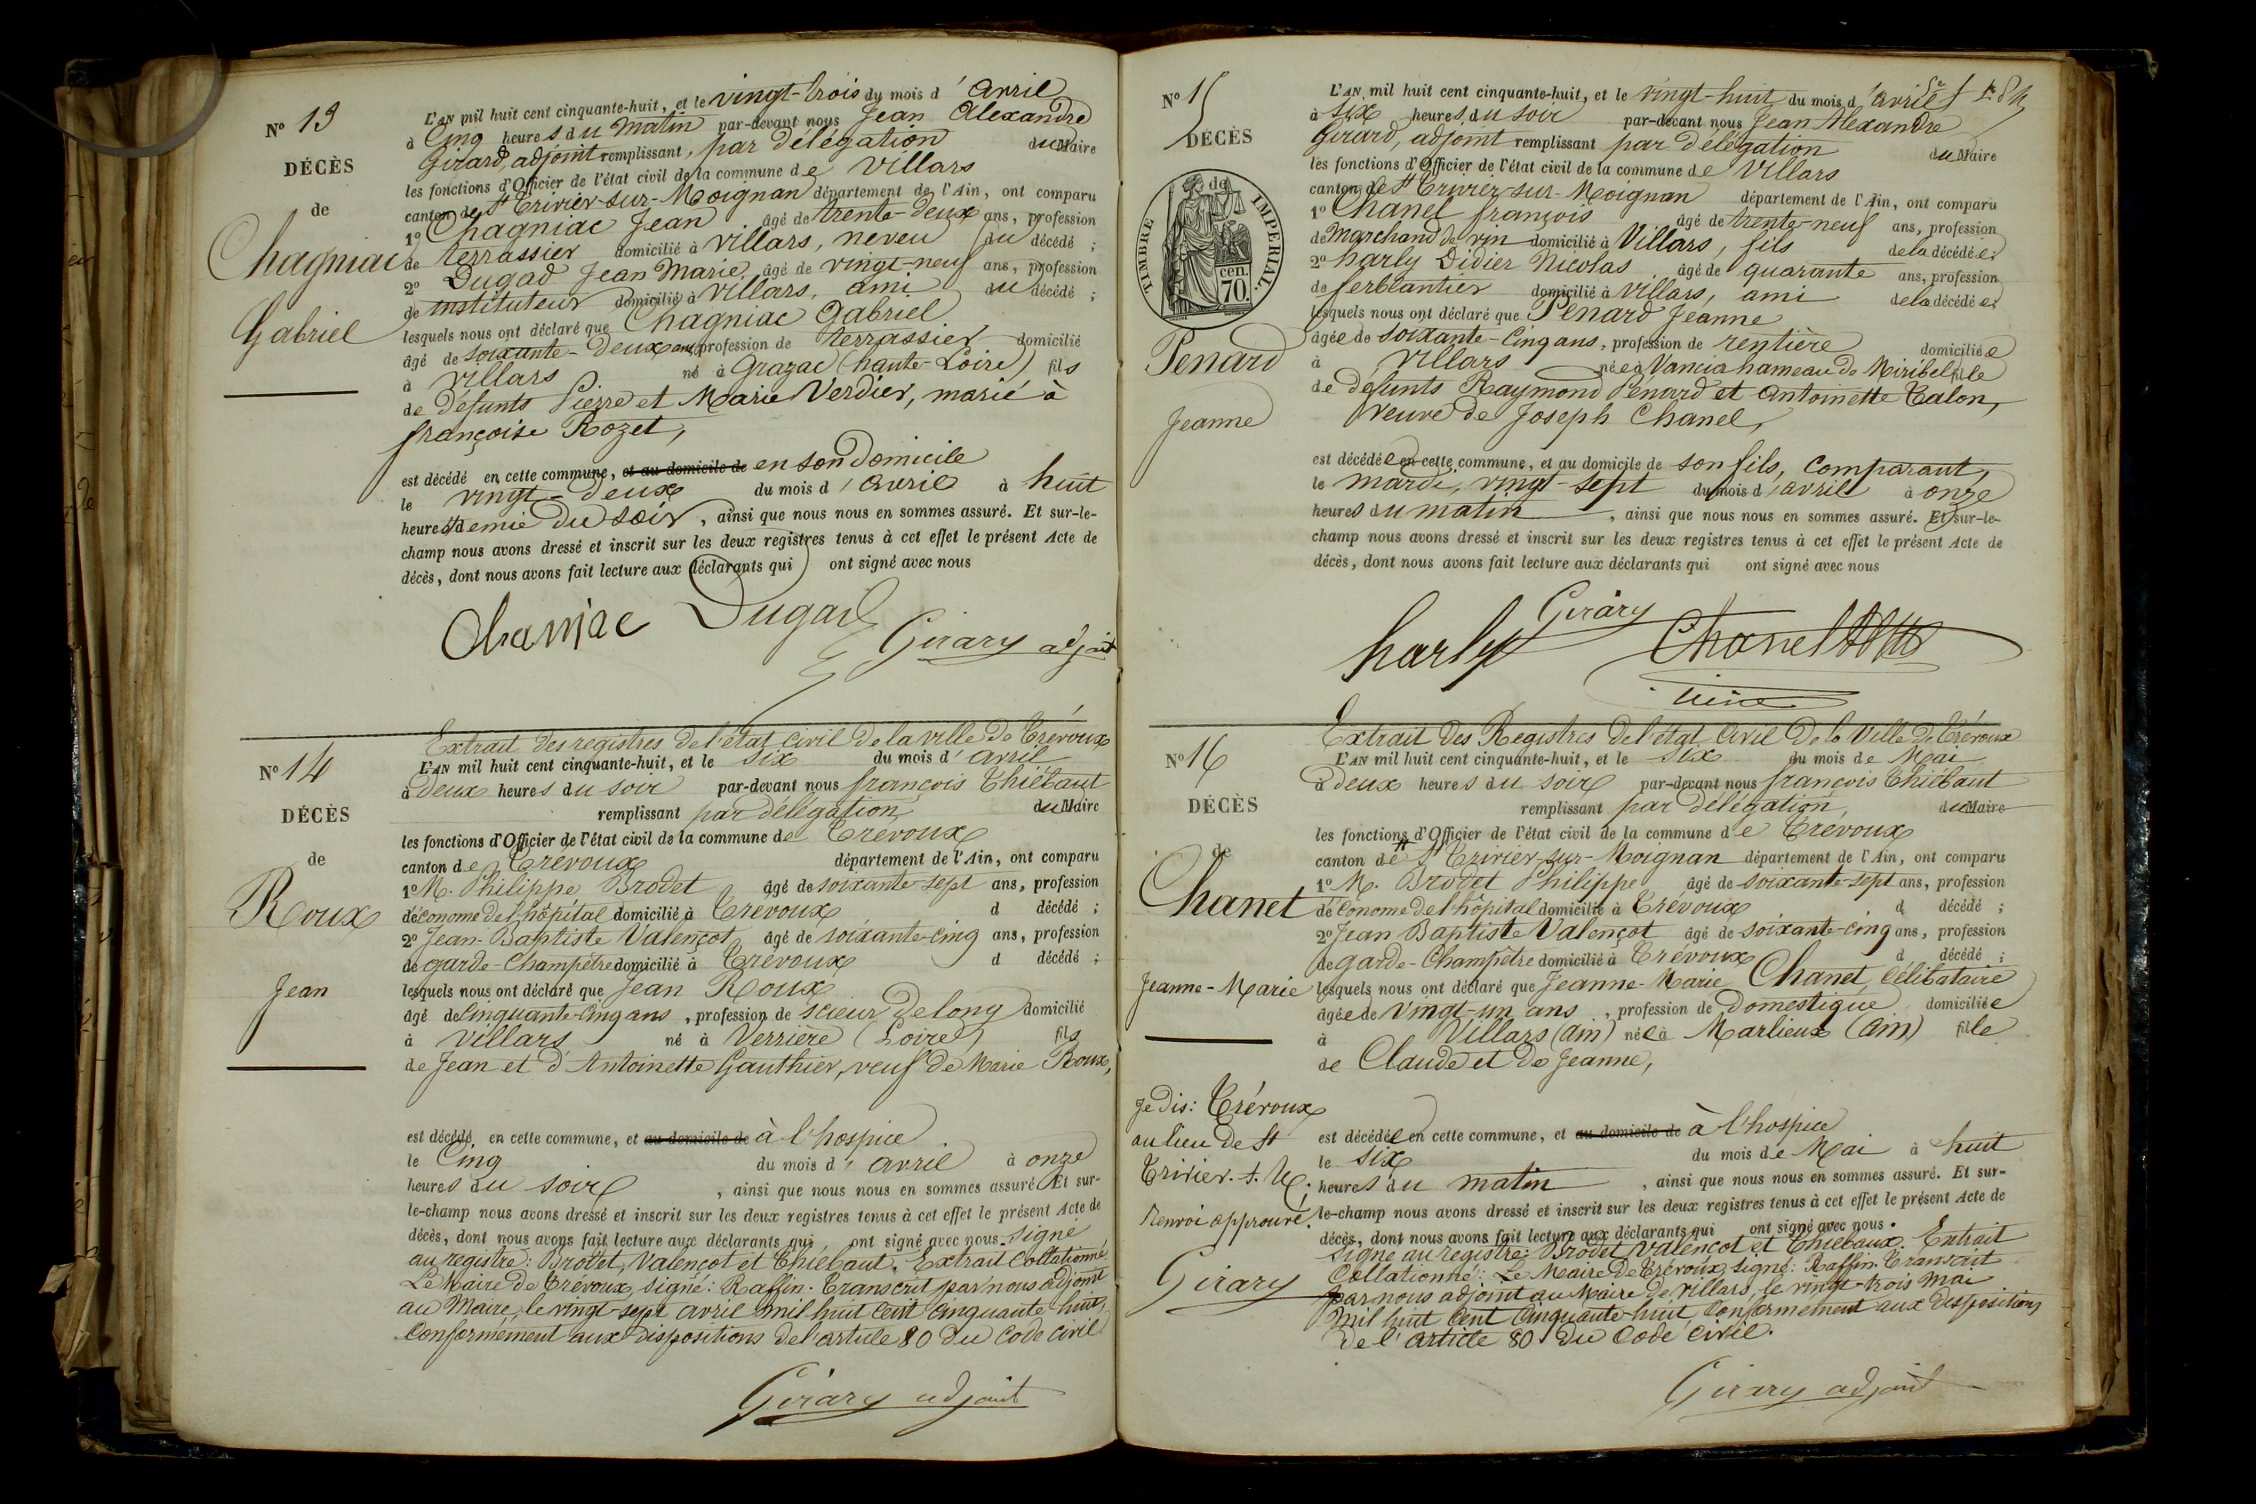 N° 13
DÉCÈS
de
Chagniac
Gabriel
L'AN mil huit cent cinquante-huit, et le vingt-trois du mois d'avril
à Cinq heures du matin par-devant nous Jean Alexandre
Girard, adjoint remplissant, par délégation du Maire
les fonctions d'Officier de l'état civil de la commune de Villars
canton de St Trivier-sur-Moignan département de l'Ain, ont comparu
1° Chagniac Jean âgé de trente-deux ans, profession
de terrassier domicilié à Villars, neveu du décédé ;
2° Dugad Jean Marie, âgé de vingt-neuf ans, profession
de instituteur domicilié à Villars, ami du décédé ;
lesquels nous ont déclaré que Chagniac Gabriel
âgé de soixante-deux ans, profession de terrassier domicilié
à Villars né à Grazac (haute-Loire) fils
de défunts Pierre et Marie Verdier, marié à
françoise Rozet,
est décédé en cette commune, et au domicile de en son domicile
le vingt-deux du mois d'avril à huit
heures demie du soir, ainsi que nous nous en sommes assuré. Et sur-le-
champ nous avons dressé et inscrit sur les deux registres tenus à cet effet le présent Acte de
décès, dont nous avons fait lecture aux déclarants qui ont signé avec nous
Chaniac Dugad
Girard adjoint
N° 14
DÉCÈS
de
Roux
Jean
Extrait des registres de l'état civil de la ville de Trévoux
L'AN mil huit cent cinquante-huit, et le six du mois d'avril
à deux heures du soir par-devant nous françois Thiébaut
remplissant par délégation du Maire
les fonctions d'Officier de l'état civil de la commune de Trévoux
canton de Trévoux département de l'Ain, ont comparu
1° M. Philippe Brodet âgé de soixante-sept ans, profession
d'économe de l'hôpital domicilié à Trévoux d décédé ;
2° Jean-Baptiste Valençot âgé de soixante-cinq ans, profession
de garde-Champêtre domicilié à Trévoux d décédé ;
lesquels nous ont déclaré que Jean Roux
âgé de Cinquante-Cinq ans, profession de scieur de long domicilié
à Villars né à Verrière (Loire) fils
de Jean et d'Antoinette Gauthier, veuf de Marie Roux,
est décédé en cette commune, et au domicile de à l'hospice
le Cinq du mois d'avril à onze
heures du soir, ainsi que nous nous en sommes assuré. Et sur-
le-champ nous avons dressé et inscrit sur les deux registres tenus à cet effet le présent Acte de
décès, dont nous avons fait lecture aux déclarants qui ont signé avec nous. signé
au registre : Brodet, Valençot et Thiébaut. Extrait Collationné
Le Maire de Trévoux, signé : Raffin. Transcrit par nous adjoint
au Maire, le vingt-sept avril mil huit cent cinquante huit,
Conformément aux Dispositions de l'article 80 du Code civil
Girard adjoint
N° 15
DÉCÈS
de
TIMBRE IMPÉRIAL
70. cen.
Penard
Jeanne
L'AN mil huit cent cinquante-huit, et le vingt-huit du mois d'avril
à six heures du soir par-devant nous Jean Alexandre
Girard, adjoint remplissant par délégation du Maire
les fonctions d'Officier de l'état civil de la commune de Villars
canton de St Trivier-sur-Moignan département de l'Ain, ont comparu
1° Chanel françois âgé de trente-neuf ans, profession
de Marchand de vin domicilié à Villars, fils de la décédée ;
2° harly Didier Nicolas âgé de quarante ans, profession
de ferblantier domicilié à Villars, ami de la décédée ;
lesquels nous ont déclaré que Penard Jeanne
âgée de soixante-Cinq ans, profession de rentière domiciliée
à Villars née à Vancia hameau de Miribel fille
de défunts Raymond Penard et Antoinette Talon,
veuve de Joseph Chanel,
est décédée en cette commune, et au domicile de son fils, comparant,
le mardi, vingt-sept du mois d'avril à onze
heures du matin, ainsi que nous nous en sommes assuré. Et sur-le-
champ nous avons dressé et inscrit sur les deux registres tenus à cet effet le présent Acte de
décès, dont nous avons fait lecture aux déclarants qui ont signé avec nous
Girard
harly Chanel
N° 16
DÉCÈS
de
Chanet
Jeanne-Marie
Extrait des Registres de l'état Civil de la Ville de Trévoux
L'AN mil huit cent cinquante-huit, et le six du mois de Mai
à deux heures du soir par-devant nous françois Thiébaut
remplissant par délégation du Maire
les fonctions d'Officier de l'état civil de la commune de Trévoux
canton de St Trivier-sur-Moignan département de l'Ain, ont comparu
1° M. Brodet Philippe âgé de soixante-sept ans, profession
d'économe de l'hôpital domicilié à Trévoux d décédé ;
2° Jean Baptiste Valençot âgé de soixante-cinq ans, profession
de garde-Champêtre domicilié à Trévoux d décédé ;
lesquels nous ont déclaré que Jeanne-Marie Chanet, Célibataire
âgée de vingt-un ans, profession de Domestique domiciliée
à Villars (ain) née à Marlieux (ain) fille
de Claude et de Jeanne,
Je dis : Trévoux
au lieu de St
Trivier. s. M.
Renvoi approuvé.
Girard
est décédée en cette commune, et au domicile de à l'hospice
le six du mois de Mai à huit
heures du matin, ainsi que nous nous en sommes assuré. Et sur-
le-champ nous avons dressé et inscrit sur les deux registres tenus à cet effet le présent Acte de
décès, dont nous avons fait lecture aux déclarants qui ont signé avec nous.
signé au registre : Brodet, Valençot et Thiébaux. Extrait
Collationné : Le Maire de Trévoux, signé : Raffin. Transcrit
par nous adjoint au Maire de Villars, le vingt-trois Mai
Mil huit Cent Cinquante-huit, Conformément aux Dispositions
de l'article 80 du Code civil.
Girard adjoint